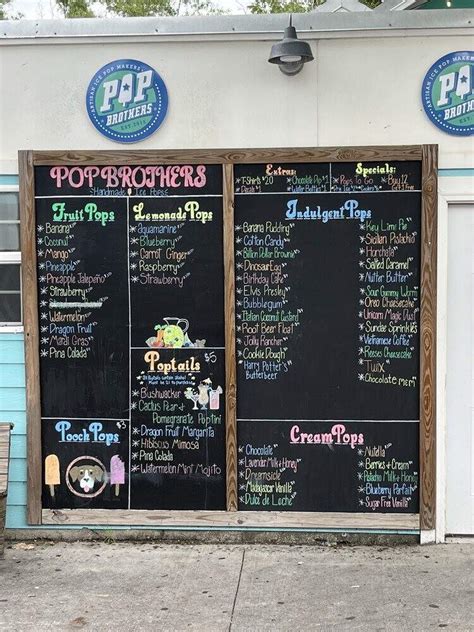 ARTISAN ICE POP MAKERS
POP
BROTHERS
ARTISAN ICE POP MAKERS
POP
BROTHERS
POP BROTHERS
Handmade Ice Pops
Extras:
T-Shirts $20
Chocolate Dip $1
Water Bottles
Pops To Go
Specials:
Buy 12
Fruit Pops
*Banana
*Coconut
*Mango
*Pineapple
*Pineapple Jalapeño
*Strawberry
*Watermelon
*Dragon Fruit
*Mardi Gras
*Pina Colada
Lemonade Pops
*Aquamarine
*Blueberry
*Carrot Ginger
*Raspberry
*Strawberry
Poptails $5
*Bushwacker
*Cactus Pear +
Pomegranate Poptini
*Dragon Fruit Margarita
*Hibiscus Mimosa
*Pina Colada
*Watermelon Mint Mojito
Pooch Pops $3
Indulgent Pops
*Banana Pudding
*Cotton Candy
*Billion Dollar Brownie
*Dinosaur Egg
*Birthday Cake
*Elvis Presley
*Bubblegum
*Italian Coconut Custard
*Root Beer Float
*Jolly Rancher
*Cookie Dough
*Harry Potter's
Butterbeer
*Key Lime Pie
*Sicilian Pistachio
*Horchata
*Salted Caramel
*Nutter Butter
*Sour Gummy Worm
*Oreo Cheesecake
*Unicorn Magic
*Sundae Sprinkles
*Vietnamese Coffee
*Reeses Cheesecake
*Twix
*Chocolate M&M
Cream Pops
*Chocolate
*Lavender Milk + Honey
*Dreamsicle
*Madagascar Vanilla
*Dulce de Leche
*Nutella
*Berries + Cream
*Pistachio Milk + Honey
*Blueberry Parfait
*Sugar Free Vanilla